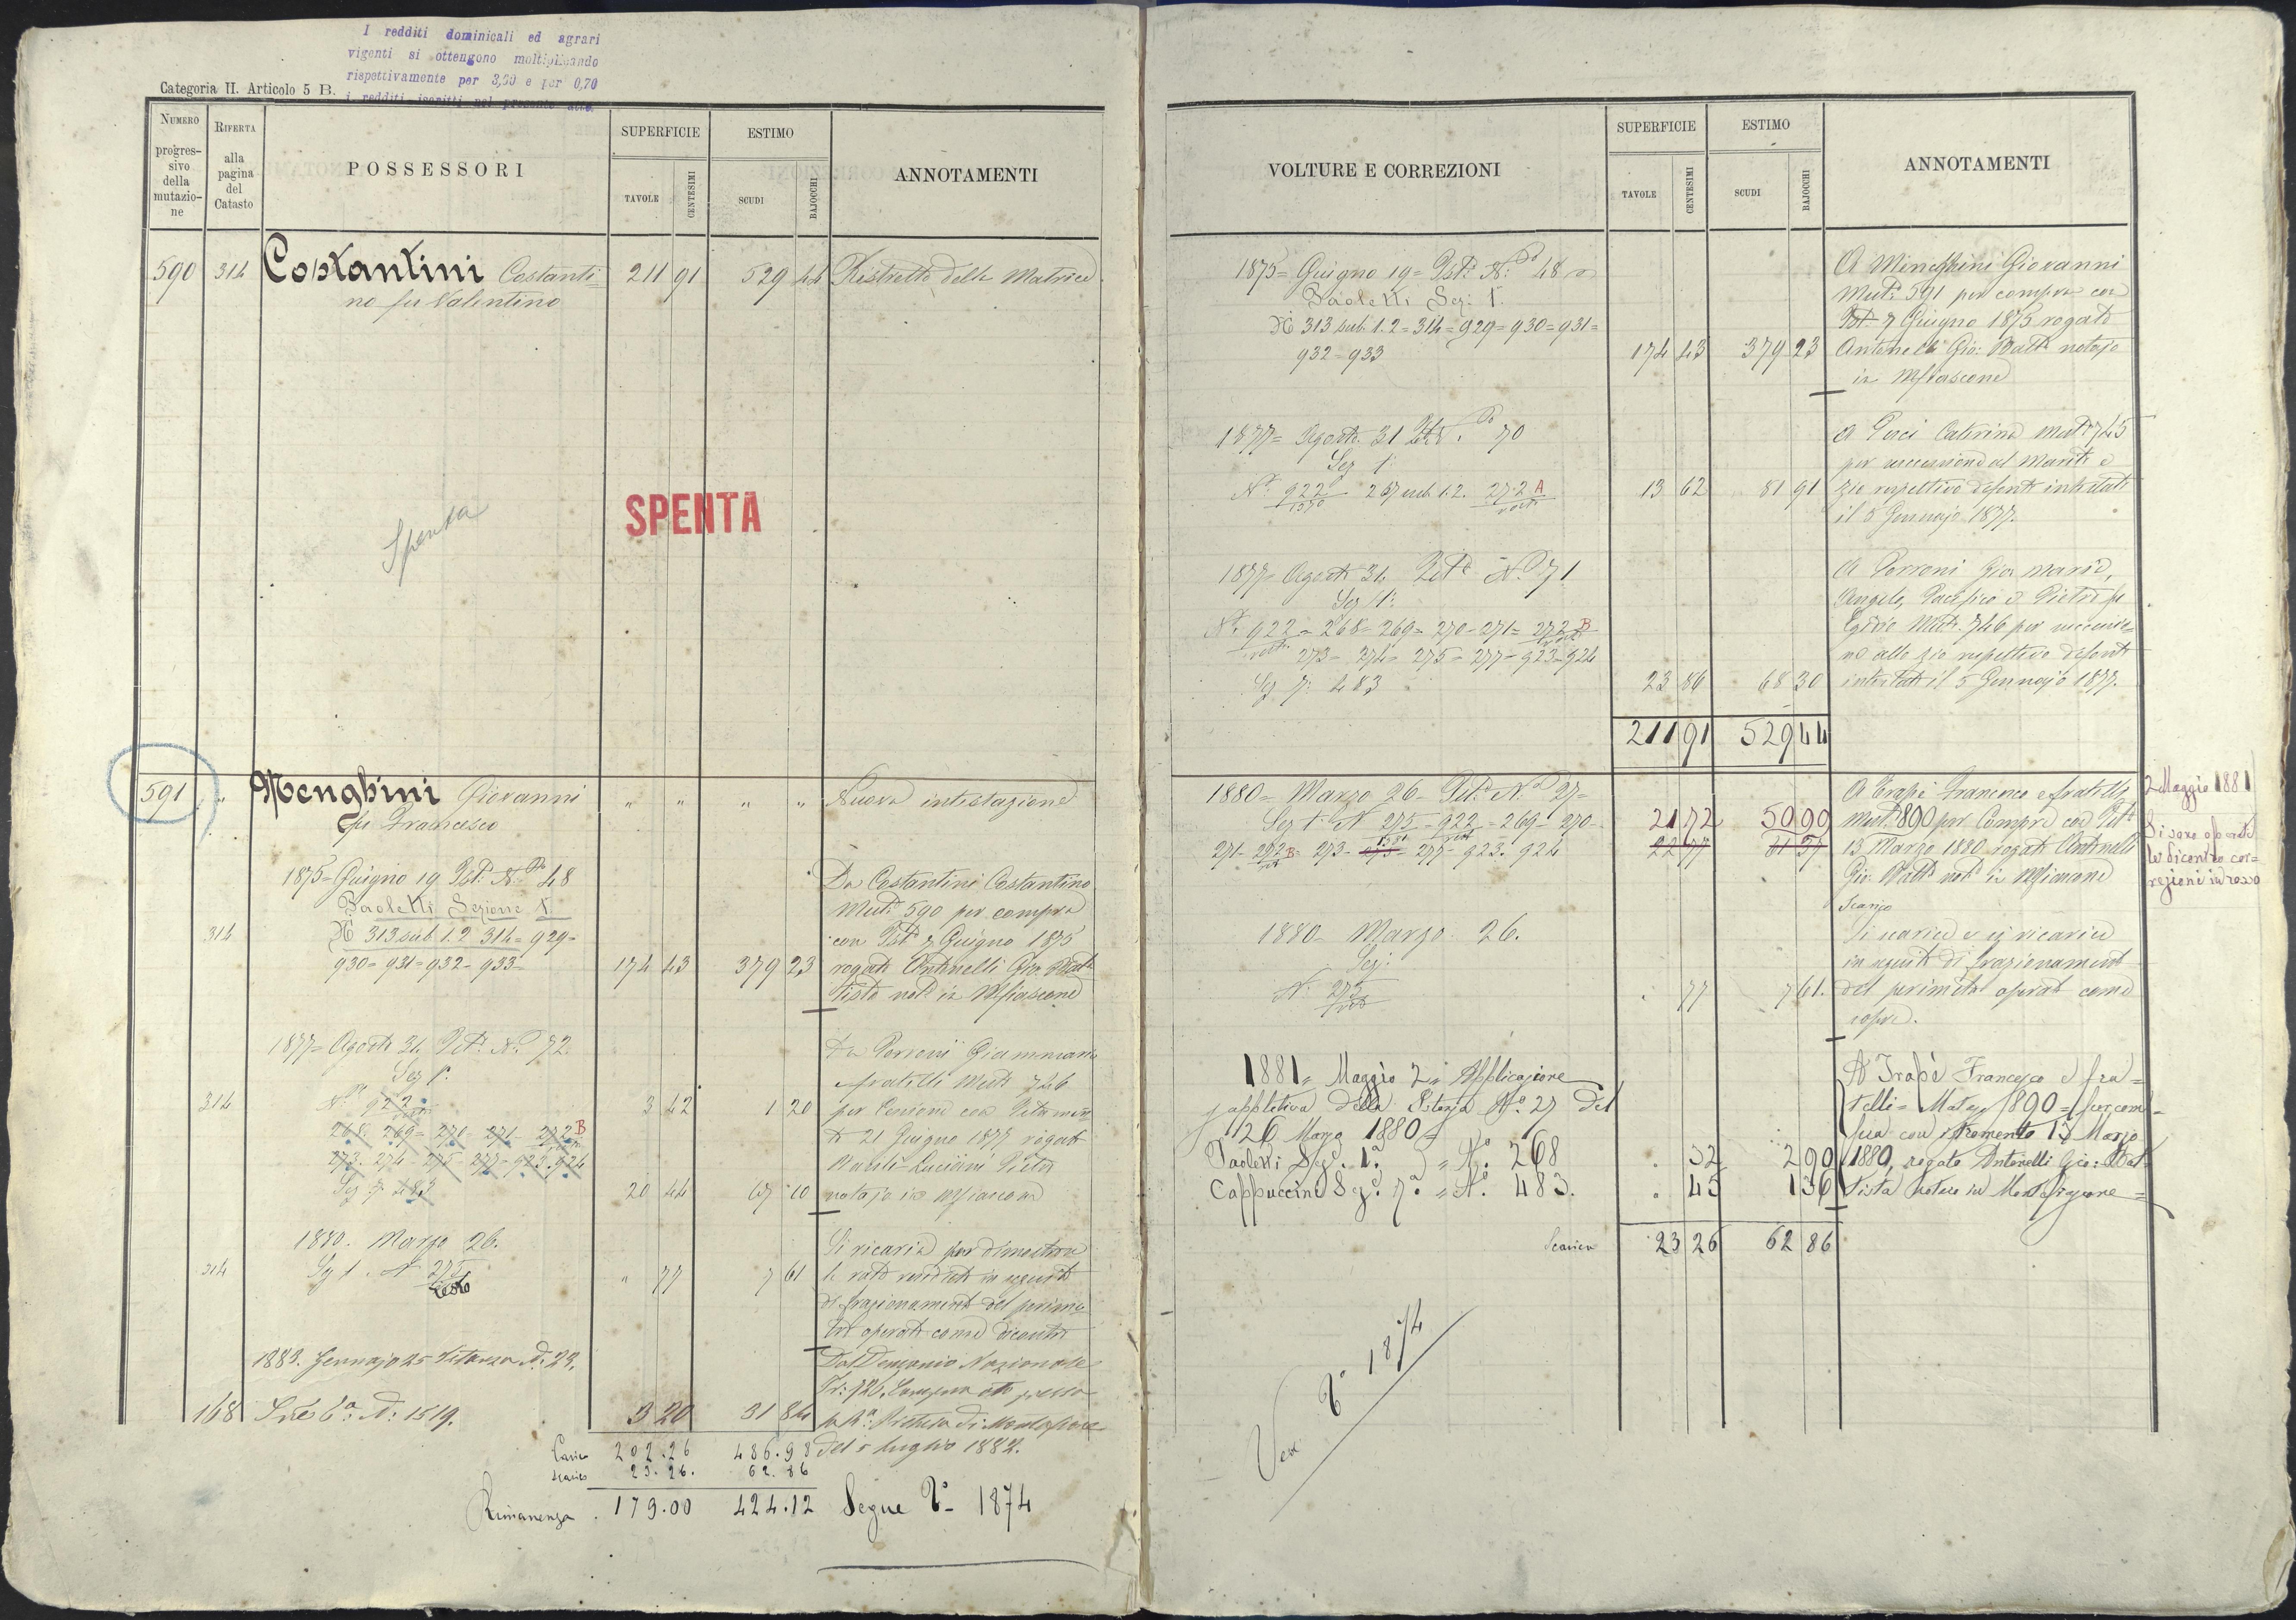 I redditi dominicali ed agrari
vigenti si ottengono moltiplicando
rispettivamente per 3,00 e per 0,70
i redditi iscritti nel presente atto.
Categoria II. Articolo 5 B.
NUMERO progres-sivo della mutazio-ne
RIFERTA alla pagina del Catasto
POSSESSORI
SUPERFICIE
TAVOLE CENTESIMI
ESTIMO
SCUDI BAJOCCHI
ANNOTAMENTI
590 314 Costantini Costanti= 211 91 529 44 Ristretto della Matrice
no fu Valentino
Spenta
SPENTA
591 " Menghini Giovanni " " " " Nuova intestazione
fu Francesco
1875= Giugno 19 Ist. N.° 48 Da Costantini Costantino
Paoletti Sezione 1. Mut. 590 per compra
314 N.i 313 sub. 1.2 314= 929= con Ist. 7 Giugno 1875
930= 931= 932- 933- 174 43 379 23 rogato Antonelli Gio. Bat=
tista not. in Mfiascone
1877= Agosto 31 Pet. N. 72. Da Perroni Giammaria
Sez 1. e fratelli Mut. 746
314 N. 922 3 42 1 20 per Cessione con Istrumen=
268. 269= 270- 271- 272 B to 21 Giugno 1877 rogato
273. 274- 275- 277- 923. 924 Luciani Pietro
Sez 7. 483 20 44 67 10 notajo in Mfiascone
1880. Marzo 26. Si ricarica per dimostrare
314 Sez 1. N 275 " 77 7 61 in seguito
resto di frazionamento del perime=
tro operato come dicontro
1883. Gennajo 25 Istanza N. 23. Dal Demanio Nazionale
168 Sez. 6.a N. 1519. 3 20 31 84
del 5 Luglio 1882.
Carico 202.26 486.98
Scarico 23.26. 62.86
Rimanenza 179.00 424.12 Segue V.° 1874
VOLTURE E CORREZIONI
SUPERFICIE
TAVOLE CENTESIMI
ESTIMO
SCUDI BAJOCCHI
ANNOTAMENTI
1875= Giugno 19= Ist. N. 48 A Menghini Giovanni
Paoletti Sez: 1. Mut. 591 per compra con
N.i 313 sub. 1.2= 314= 929= 930= 931= Ist. 7 Giugno 1875 rogato
932- 933 174 43 379 23 Antonelli Gio: Batt. notajo
in Mfiascone
1877= Agosto 31 N. 70 A Caterina Mut. 745
Sez 1. per successione al Marito e
N. 922 267 sub. 1.2. 272 A 13 62 81 91 zio rispettivo defonto intestato
il 5 Gennajo 1877.
1877= Agosto 31 Pet. N. 71 A Perroni Gio Maria,
Sez 1. Angelo, Pacifico e Pietro fu
N. 922= 268= 269= 270- 271= 272 B Egidio Mut. 746 per successio=
273= 274= 275= 277= 923= 924 ne allo zio rispettivo defonto
Sez 7. 483 23 86 68 30 intestato il 5 Gennajo 1877.
211 91 529 44
1880= Marzo 26- Pet. N. 27= A Trapè Francesco e fratelli
Sez 1. N 275- 922- 269- 270- 21 72 50 99 Mut. 890 per Compra con Ist.
271- 272 B= 273- 275- 277- 923. 924 22 77 61 57 13 Marzo 1880 rogato Antonelli
Gio: Batt. not. in Mfiascone
2 Maggio 1881
Si sono operate
le dicontro cor=
rezioni in rosso
Scarico
1880- Marzo 26. Si scarica e si ricarica
Sez: in seguito di frazionamento
N. 275 . 77 7 61. del perimetro operato come
sopra.
1881= Maggio 2= Applicazione A Trapè Francesco e fra=
suppletiva della Istanza N.° 27 del telli= Mut. 890= per com=
26 Marzo 1880 pra con istromento 13 Marzo
Paoletti Sez. 1.a " N.° 268 . 32 2 90 1880, rogato Antonelli Gio: Bat=
Cappuccini Sez. 7.a " N. 483. . 45 1 36 tista notaro in Montefiascone=
Scarico 23 26 62 86
Vedi V.° 1874